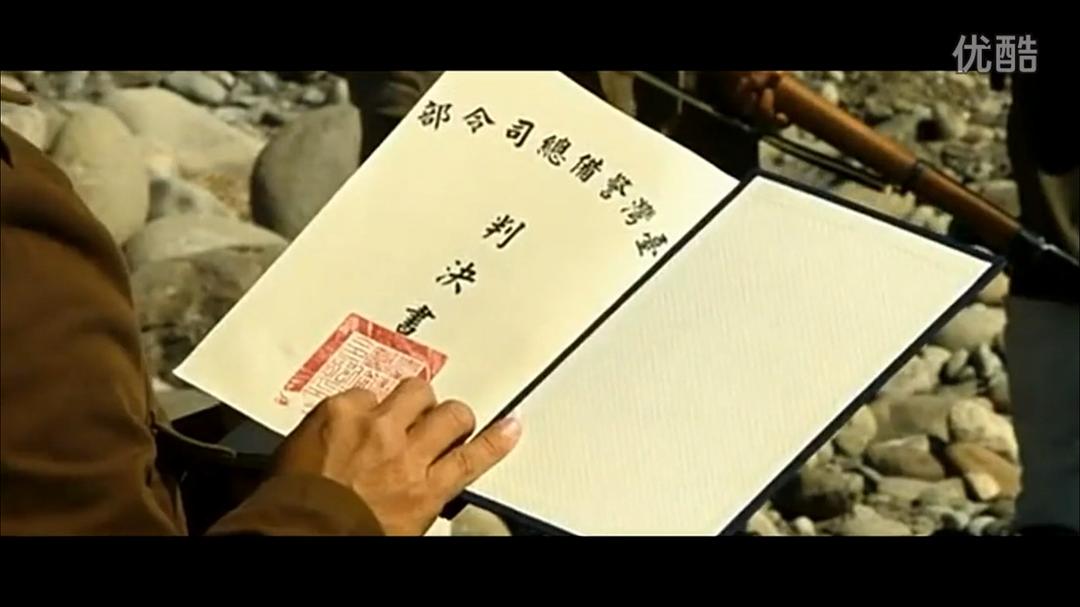 优酷
臺灣警備總司令部
判決書